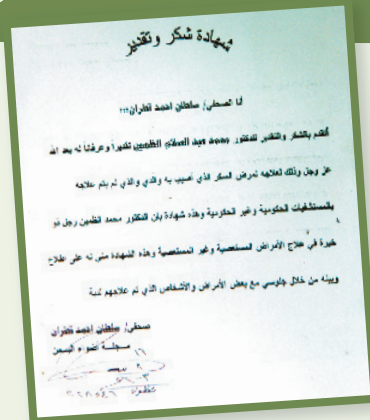 شهادة شكر وتقدير
أنا الصحفي/ سلطان احمد قطران
أتقدم بالشكر والتقدير للدكتور محمد عبد السلام الظمين تقديراً وعرفاناً له بعد الله
عز وجل وذلك لعلاجه لمرض السكر الذي أصيب به والدي والذي لم يتم علاجه
بالمستشفيات الحكومية وغير الحكومية وهذه شهادة بان الدكتور محمد الظمين رجل ذو
خبرة في علاج الأمراض المستعصية وغير المستعصية وهذه الشهادة مني له على اطلاع
وبينه من خلال جلوسي مع بعض الأمراض والأشخاص الذي تم علاجهم
صحفي/ سلطان احمد قطران
مجلة أضواء اليمن